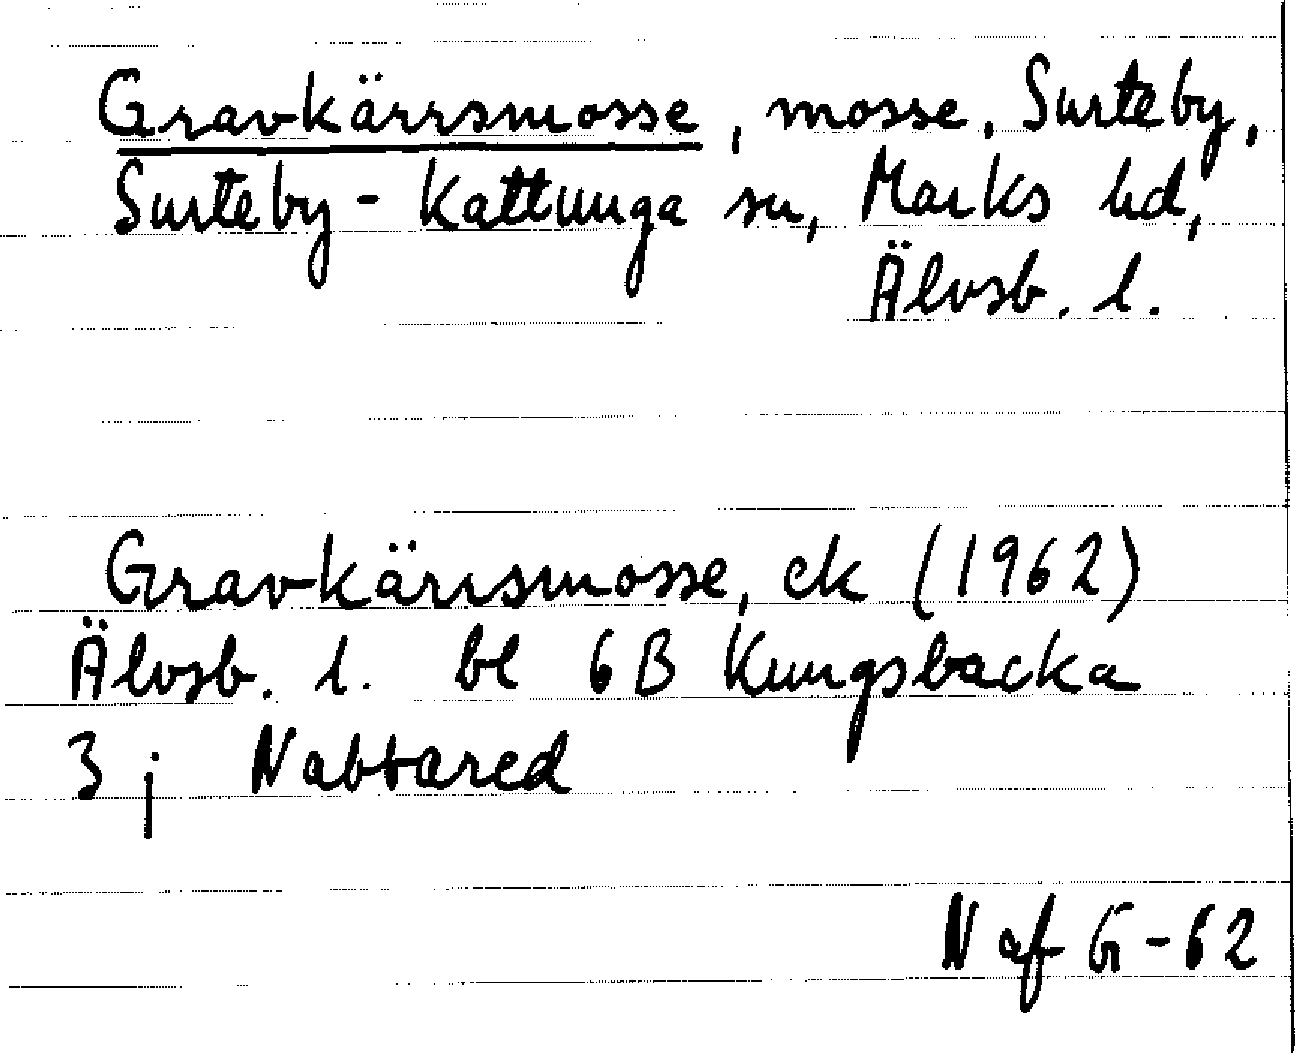 Gravkärrsmosse, mosse, Surteby,
Surteby-Kattunga sn, Marks hd,
Älvsb. l.
Gravkärrsmosse, ek (1962)
Älvsb. l. bl 6B Kungsbacka
3 j Nabbared
N af G-62